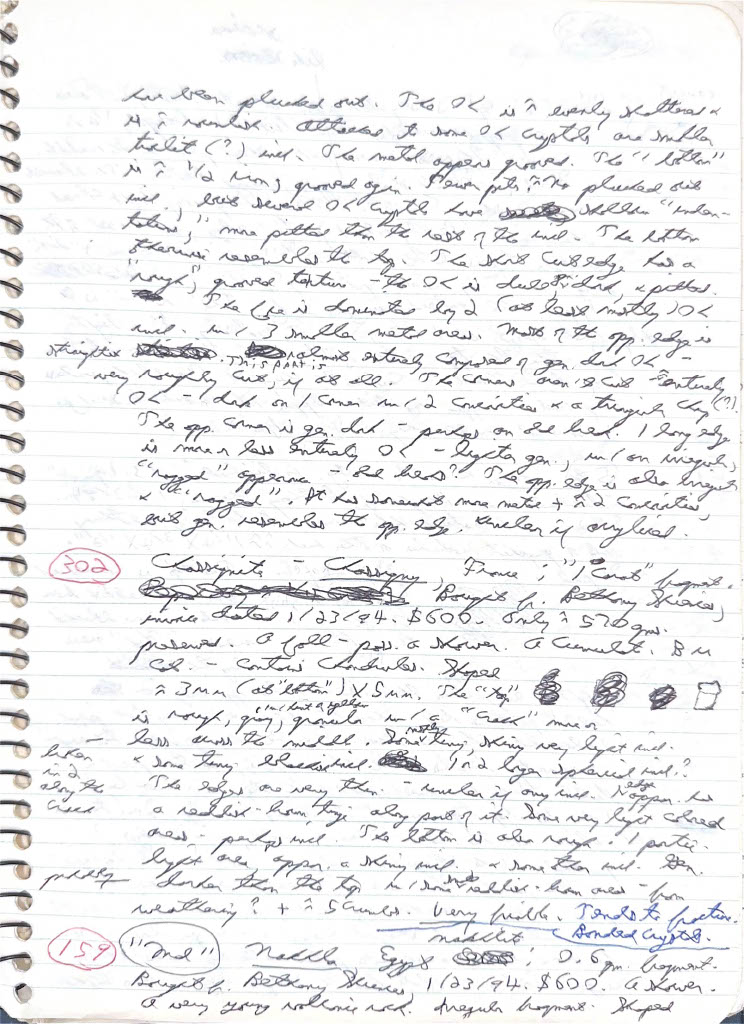 have been plucked out. The OL is ≈ evenly shattered &
is ≈ roundish. Attached to some OL crystals are smaller
troilite (?) incl. The metal appears grooved. The "bottom"
is ≈ 1/2 iron, grooved again. Fewer pits, ≈ no plucked out
incl., but several OL crystals have shallow "inden-
tations," more pitted than the rest of the incl. The bottom
otherwise resembles the top. The short cut edge has a
"rough," grooved texture - the OL is dull, dark, & pitted.
The face is dominated by 2 (at least mostly) OL
incl. w/ 3 smaller metal areas. Most of the opp. edge is
straightish almost entirely composed of gen. dark OL -
This part is
very roughly cut, if at all. The corners aren't cut - entirely (?)
OL - 1 dark on 1 corner w/ 2 concavities & a triangular chip
The opp. corner is gen. dark - perhaps an old break. 1 long edge
is more or less entirely OL - lighter gen., w/ an irregular,
"ragged" appearance - old break? The opp. edge is also irregular
& "ragged". It has somewhat more metal + ≈ 2 concavities,
but gen. resembles the opp. edge. Unclear if oxidized.
302 Chassignite - Chassigny, France; "1 Carat" fragment.
Bought fr. Bethany Sciences,
invoice dated 1/23/94. $600. Only ≈ 570 gms.
preserved. A fall - poss. a shower. A Cumulate. B M
Col. - contains chondrules. Shaped
≈ 3mm (at "bottom") X 5mm. The "top"
is rough, gray, granular w/ a "crack" more or
w/ but a yellow
less across the middle. Some tiny, shiny very light incl.
mostly
& some tiny blackish incl. 1 or 2 larger spherical incl.?
broken
in 2
along the
crack
The edges are very thin. - unclear if any incl. 1 edge appar. has
a reddish-brown tinge along part of it. Some very light colored
areas - perhaps incl. The bottom is also rough. 1 partic.
light area, appar. a shiny incl. & some other incl. Gen.
darker than the top w/ some reddish-brown areas - from
weathering? + ≈ 5 crumbs. Very friable. Tends to fracture.
Bonded Crystals.
159 "Ind" Nakhla Egypt nakhlite; 0.6 gm. fragment.
Bought fr. Bethany Sciences 1/23/94. $600. A shower.
A very young volcanic rock. Irregular fragment. Shaped